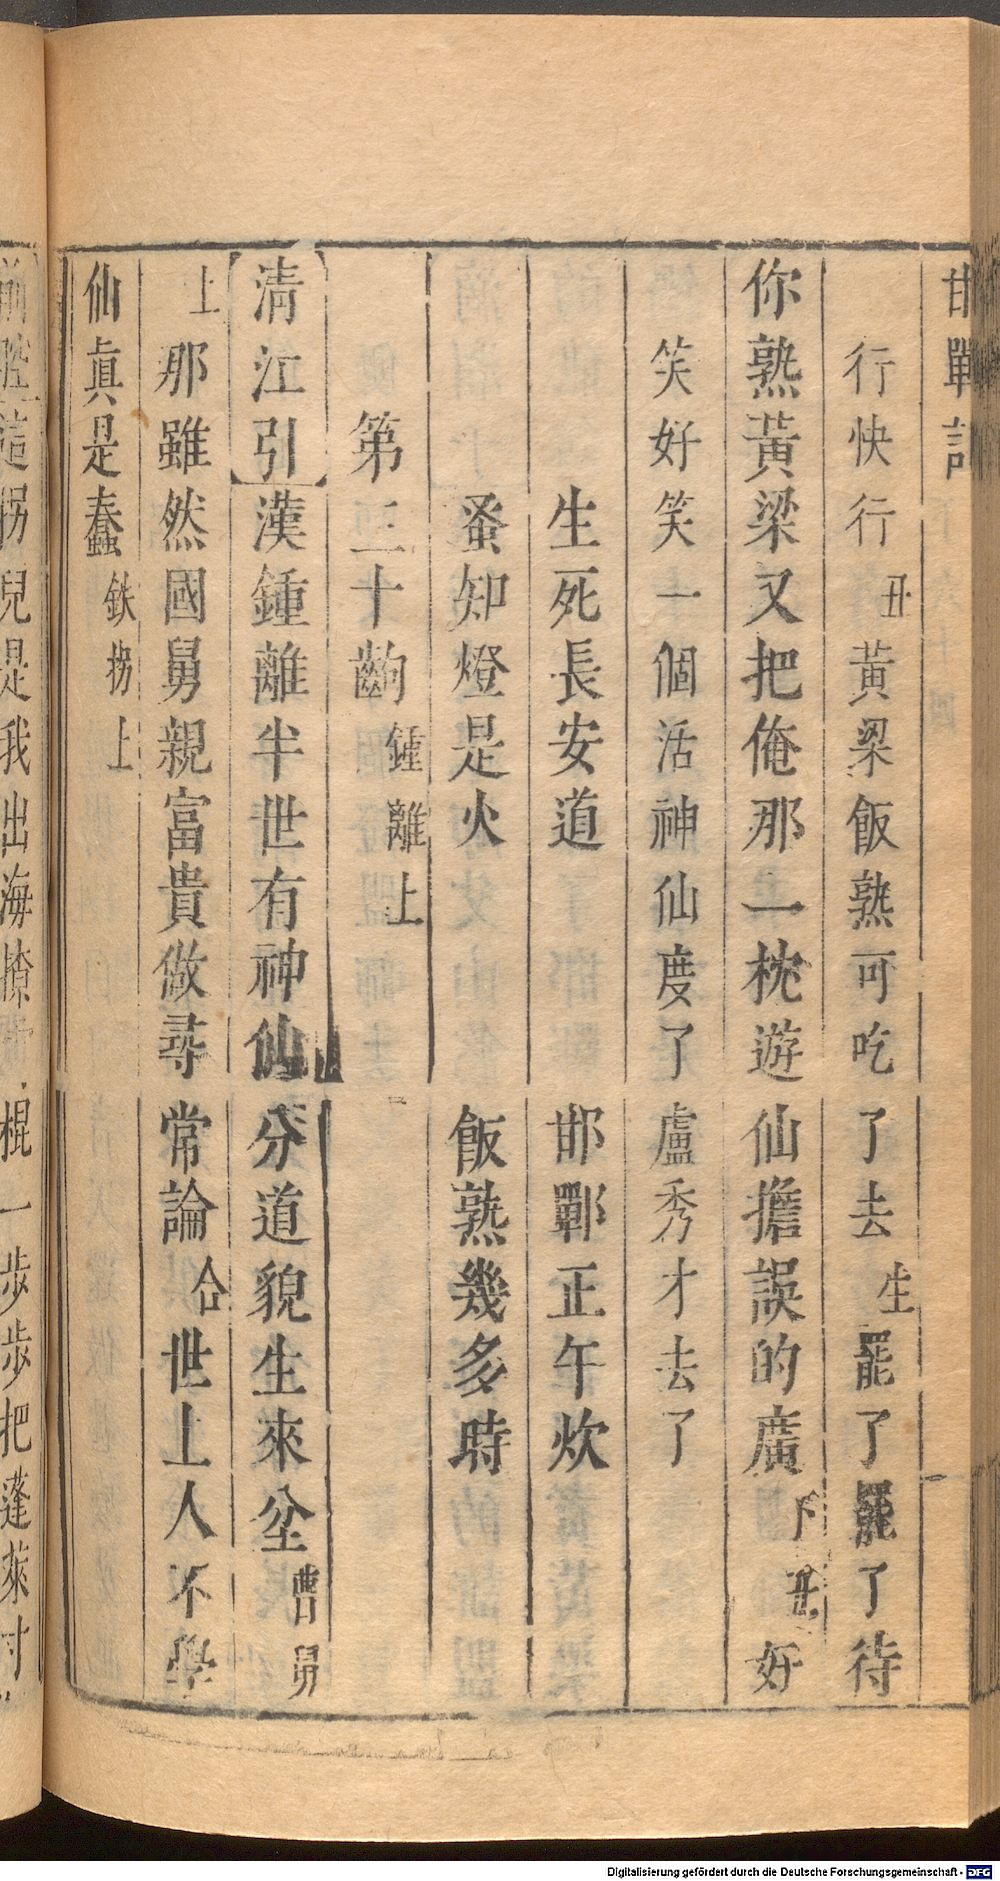 甘鄲記
行快行丑黃梁飯熟可吃了去生罷了罷了待
你熟黃梁又把俺那一枕遊仙擔誤的廣下丑好
笑好笑一個活神仙度了盧秀才去了
生死長安道邯鄲正午炊
蚤知燈是火飯熟幾多時
第三十齣鍾離上
【清江引】漢鍾離半世有神仙分道貌生來坌曹舅
上那雖然國舅親富貴做尋常論合世上人不學
仙眞是蠢鉄拐上
這拐兒是我出海撩雲棍一步步把蓬萊寸
Digitalisierung gefördert durch die Deutsche Forschungsgemeinschaft - DFG